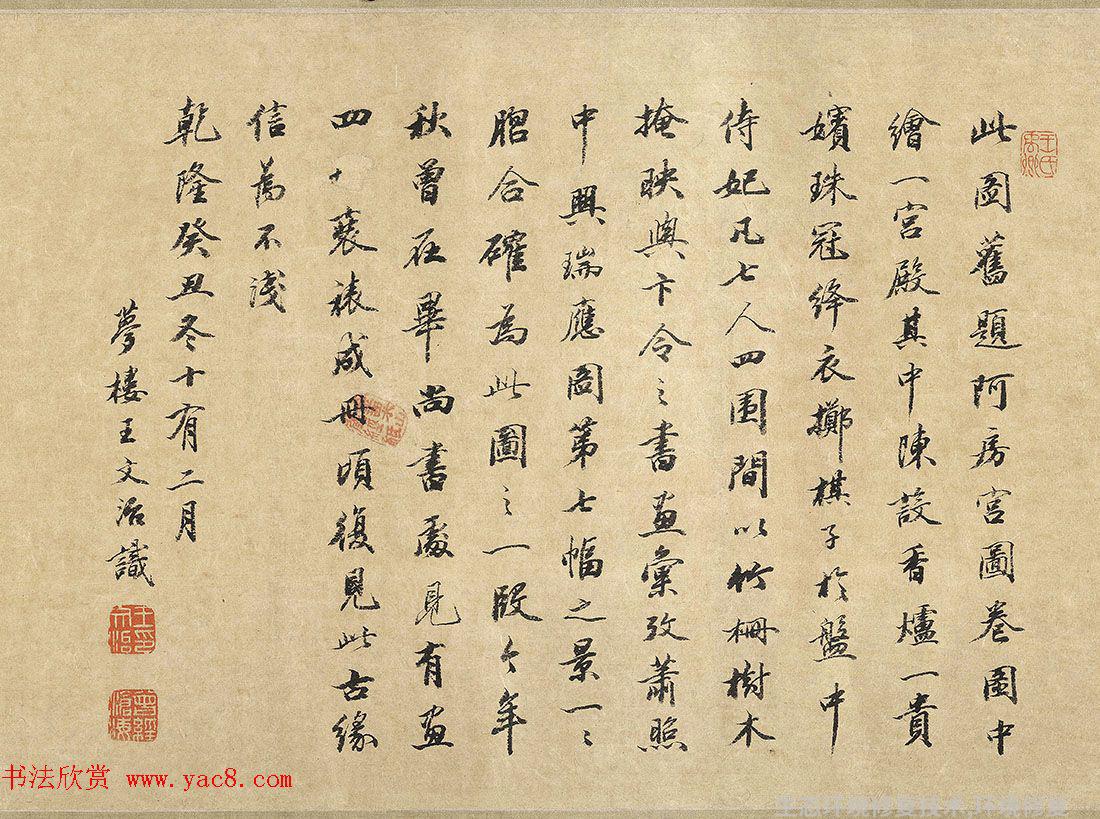 此图舊題阿房宮圖卷圖中
繪一宮殿其中陳設香爐一貴
嬪珠冠絳衣擲棋子於盤中
侍妃凡七人四圍間以竹柵樹木
掩映與卞令之書畫彙攷蕭照
中興瑞應圖第七幅之景一〻
脗合確為此圖之一段今年
秋曾在畢尚書處見有畫
四十裘裱成冊頃復見此古緣
信為不淺
乾隆癸丑冬十有二月
夢樓王文治識
王氏禹卿
王文治印
曾經滄海
书法欣赏 www.yac8.com
生态环境修复技术,环境修复